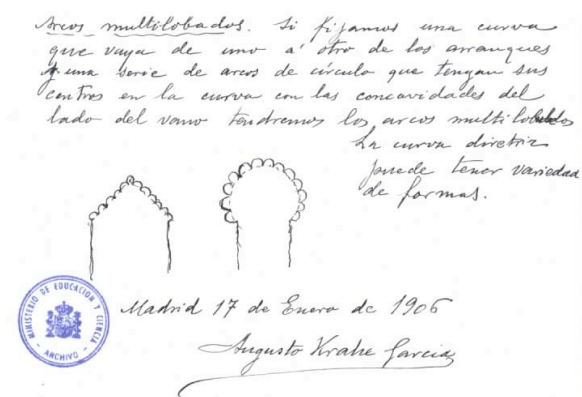 Arcos multilobados. Si fijamos una curva
que vaya de uno a' otro de los arranques
y una serie de arcos de círculo que tengan sus
centros en la curva con las concavidades del
lado del vano tendremos los arcos multilobulados
La curva diretriz
puede tener variedad
de formas.
MINISTERIO DE EDUCACION Y CIENCIA
- ARCHIVO -
Madrid 17 de Enero de 1906
Augusto Krahe Garcia